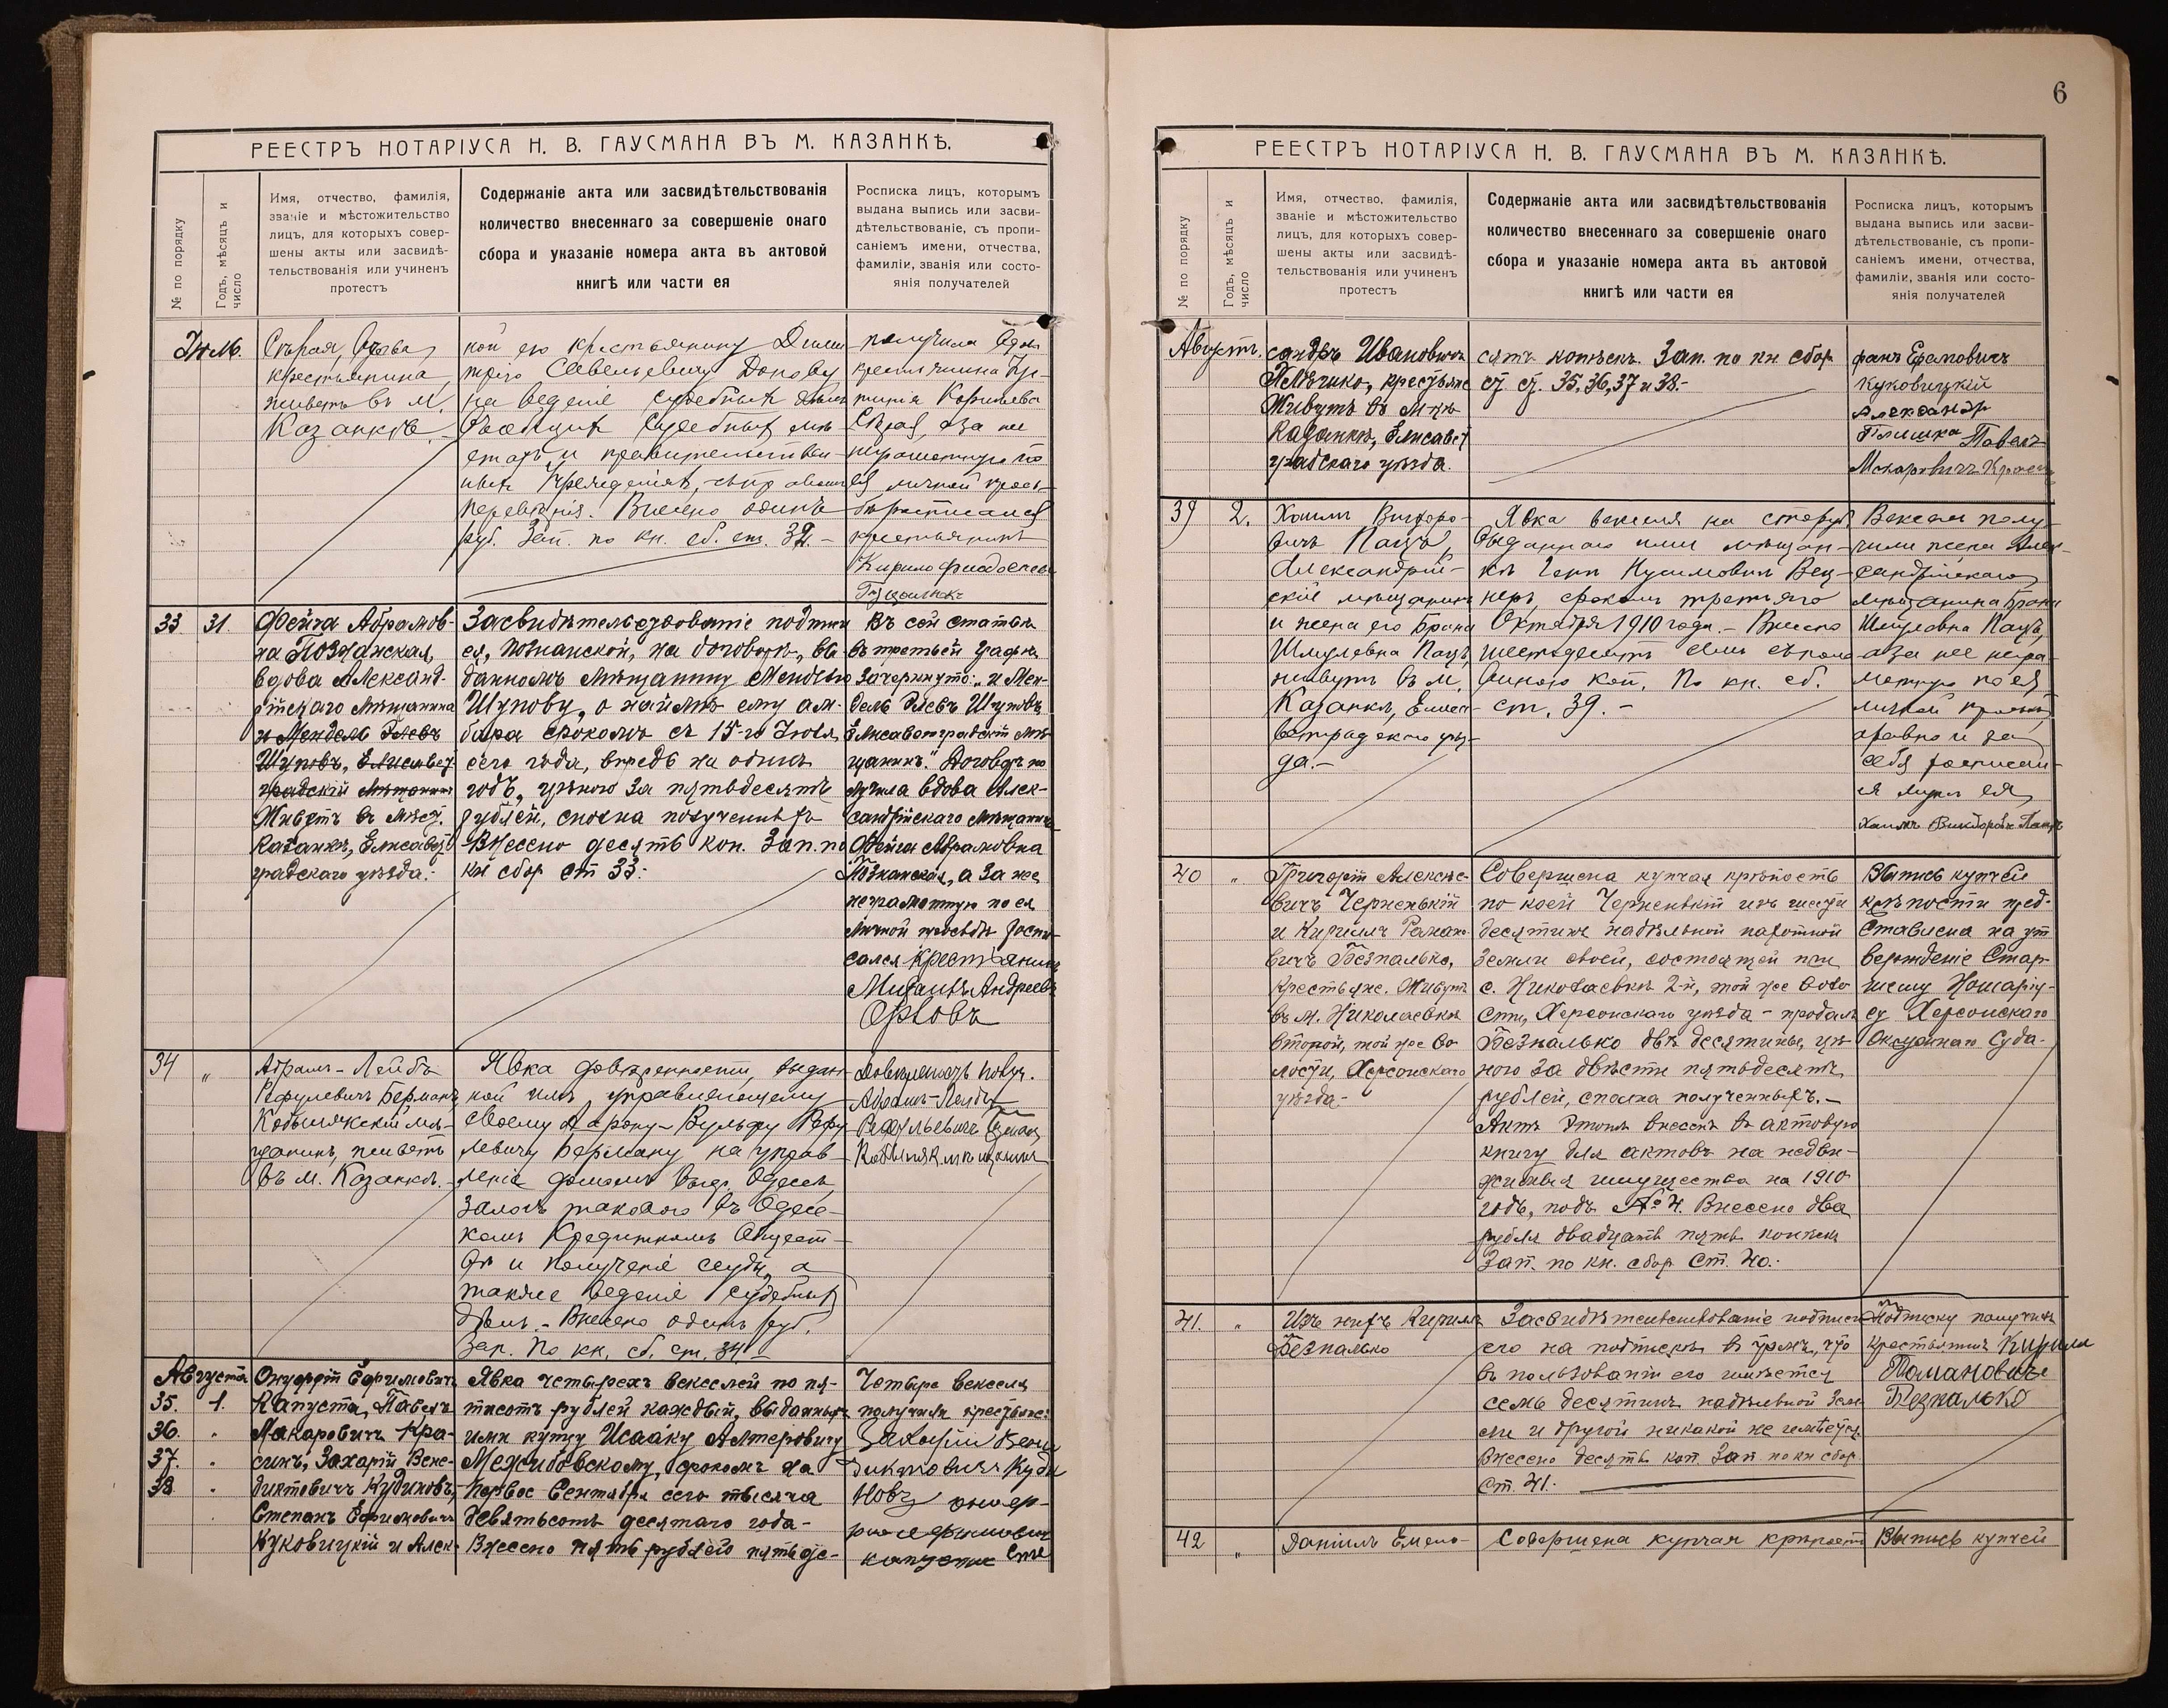 РЕЕСТРЪ НОТАРІУСА Н. В. ГАУСМАНА ВЪ М. КАЗАНКѢ.
№ по порядку
Годъ, мѣсяцъ и
число
Имя, отчество, фамилія,
званіе и мѣстожительство
лицъ, для которыхъ совер-
шены акты или засвидѣ-
тельствованія или учиненъ
протестъ
Содержаніе акта или засвидѣтельствованія
количество внесеннаго за совершеніе онаго
сбора и указаніе номера акта въ актовой
книгѣ или части ея
Росписка лицъ, которымъ
выдана выпись или засви-
дѣтельствованіе, съ пропи-
саніемъ имени, отчества,
фамиліи, званія или состо-
янія получателей
Сѣрая, вдова
крестьянина,
живетъ въ м.
Казанкѣ.
ной ею крестьянину Дими
трію Савельевичу
на веденіе судебныхъ дѣлъ
во всѣхъ судебныхъ мѣ
стахъ и правительствен
ныхъ учрежденіяхъ, съ правомъ
передовѣрія. Внесено одинъ
руб. Зап. по кн. сб. ст. 32.-
получила вдова
крестьянина
Сѣрая, а за нее
неграмотную по
ея личной прось-
бѣ росписался
крестьянинъ
33
31
Фейга Абрамов-
на Познанская,
вдова Александ-
рійскаго мѣщанина
и Мендель Лѣевъ
Шуповъ, Елисавет
градскій мѣщанинъ
Живетъ въ мѣст.
Казанкѣ, Елисавет
градскаго уѣзда.-
Засвидѣтельствованіе подписи
ея, Познанской, на договорѣ, вы-
данномъ мѣщанину Менделю
Шупову, о наймѣ ему ам-
бара срокомъ съ 15-го Іюля
сего года, впредь на одинъ
годъ, цѣною за пятьдесятъ
рублей, сполна полученныхъ
Внесено десять коп. Зап. по
кн сбор ст 33.-
Въ сей статьѣ
въ третьей графѣ
зачеркнуто: „и Мен-
дель Лѣевъ Шуповъ
Елисаветградскій мѣ-
щанинъ." Договоръ по
лучила вдова Алек-
сандрійскаго мѣщанина
Фейга Абрамовна
Познанская, а за нее
неграмотную по ея
личной просьбѣ роспи-
сался крестьянинъ
Михаилъ Андреевъ
Орловъ
34
„
Абрамъ-Лейба
Рефулевичъ Берманъ,
Кобылякскій мѣ-
щанинъ, живетъ
въ м. Казанкѣ.-
Явка довѣренности, выдан-
ной имъ, управляющему
своему Аарону-Вульфу Рефу
левичу Берману на управ
леніе домомъ въ гор. Одессѣ,
залогъ таковаго въ Одесс-
комъ Кредитномъ Общест-
вѣ и полученіе ссуды, а
также веденіе судебныхъ
дѣлъ.- Внесено одинъ руб.
Зап. по кн. сб. ст. 34.-
Довѣренность получ.
Абрамъ-Лейба
Рефульевичъ Берманъ
Августа
35.
1.
36.
37.
38
Онуфрій Ефимовичъ
Капуста, Павелъ
Макаровичъ Кра-
синъ, Захарій Вене-
диктовичъ Кудиновъ,
Степанъ Ефимовичъ
Куковицкій и Алек-
Явка четырехъ векселей по пя-
тисотъ рублей каждый, выданныхъ
ими купцу Исааку Алтеровичу
Межибовскому, срокомъ на
первое Сентября сего тысяча
девятьсотъ десятаго года-
Внесено пять рублей пятьде-
Четыре векселя
получили крестьяне:
Захарій Вене
диктовичъ Куди
новъ онуф-
рие ефимович
капуста Сте
6
РЕЕСТРЪ НОТАРІУСА Н. В. ГАУСМАНА ВЪ М. КАЗАНКѢ.
№ по порядку
Годъ, мѣсяцъ и
число
Имя, отчество, фамилія,
званіе и мѣстожительство
лицъ, для которыхъ совер-
шены акты или засвидѣ-
тельствованія или учиненъ
протестъ
Содержаніе акта или засвидѣтельствованія
количество внесеннаго за совершеніе онаго
сбора и указаніе номера акта въ актовой
книгѣ или части ея
Росписка лицъ, которымъ
выдана выпись или засви-
дѣтельствованіе, съ пропи-
саніемъ имени, отчества,
фамиліи, званія или состо-
янія получателей
Августъ.
сандръ Ивановичъ
крестьяне
Живутъ въ мѣст.
Казанкѣ, Елисавет
градскаго уѣзда.
сятъ копѣекъ. Зап. по кн сбор
ст. ст. 35, 36, 37 и 38.-
фанъ Ефимовичъ
Куковицкій
Александр
Павелъ
Макаровичъ
39
2.
Хаимъ Викторо-
вичъ Пацъ,
Александрій-
скій мѣщанинъ
и жена его Брана
Шмулевна Пацъ,
живутъ въ м.
Казанкѣ, Елиса-
ветградскаго уѣз-
да.-
Явка векселя на сто руб
выданнаго ими мѣщан-
кѣ
срокомъ третьяго
Октября 1910 года.- Внесено
шестьдесятъ
коп. По кн. сб.
ст. 39.-
Вексель полу-
чили жена Алек-
сандрійскаго
мѣщанина Брана
Шмулевна Пацъ,
а за нее негра-
мотную по ея
личной просьбѣ,
а равно и за
себя росписал-
ся мужъ ея
Хаимъ Викторовъ Пацъ
40
„
Григорій Алексѣе-
вичъ Черненькій
и Кириллъ Романо-
вичъ Безпалько,
крестьяне. Живутъ
въ м. Николаевкѣ
второй, той же во
лости, Херсонскаго
уѣзда.-
Совершена купчая крѣпость
по коей Черненькій изъ шести
десятинъ надѣльной пахотной
земли своей, состоящей при
с. Николаевкѣ 2-й, той же воло
сти, Херсонскаго уѣзда - продалъ
Безпалько двѣ десятины, цѣ
ною за двѣсти пятьдесятъ
рублей, сполна полученныхъ.-
Актъ этотъ внесенъ въ актовую
книгу для актовъ на недви-
жимыя имущества на 1910
годъ, подъ № 4. Внесено два
рубля двадцать пять копѣекъ
Зап. по кн. сбор ст. 40.-
Выпись купчей
крѣпости пред-
ставлена на ут
вержденіе Стар-
шему Нотаріу-
су Херсонскаго
Окружнаго Суда.-
41.
„
Изъ нихъ Кириллъ
Безпалько
Засвидѣтельствованіе подписи
его на подпискѣ въ томъ, что
въ пользованіи его имѣется
семь десятинъ надѣльной зем
ли и другой никакой не имѣется
Внесено десять коп Зап по кн сбор
ст. 41.-
Подписку получилъ
крестьянинъ Кирилл
Романович
Безпалько
42
„
Даніилъ Емель-
Совершена купчая крѣпость
Выпись купчей